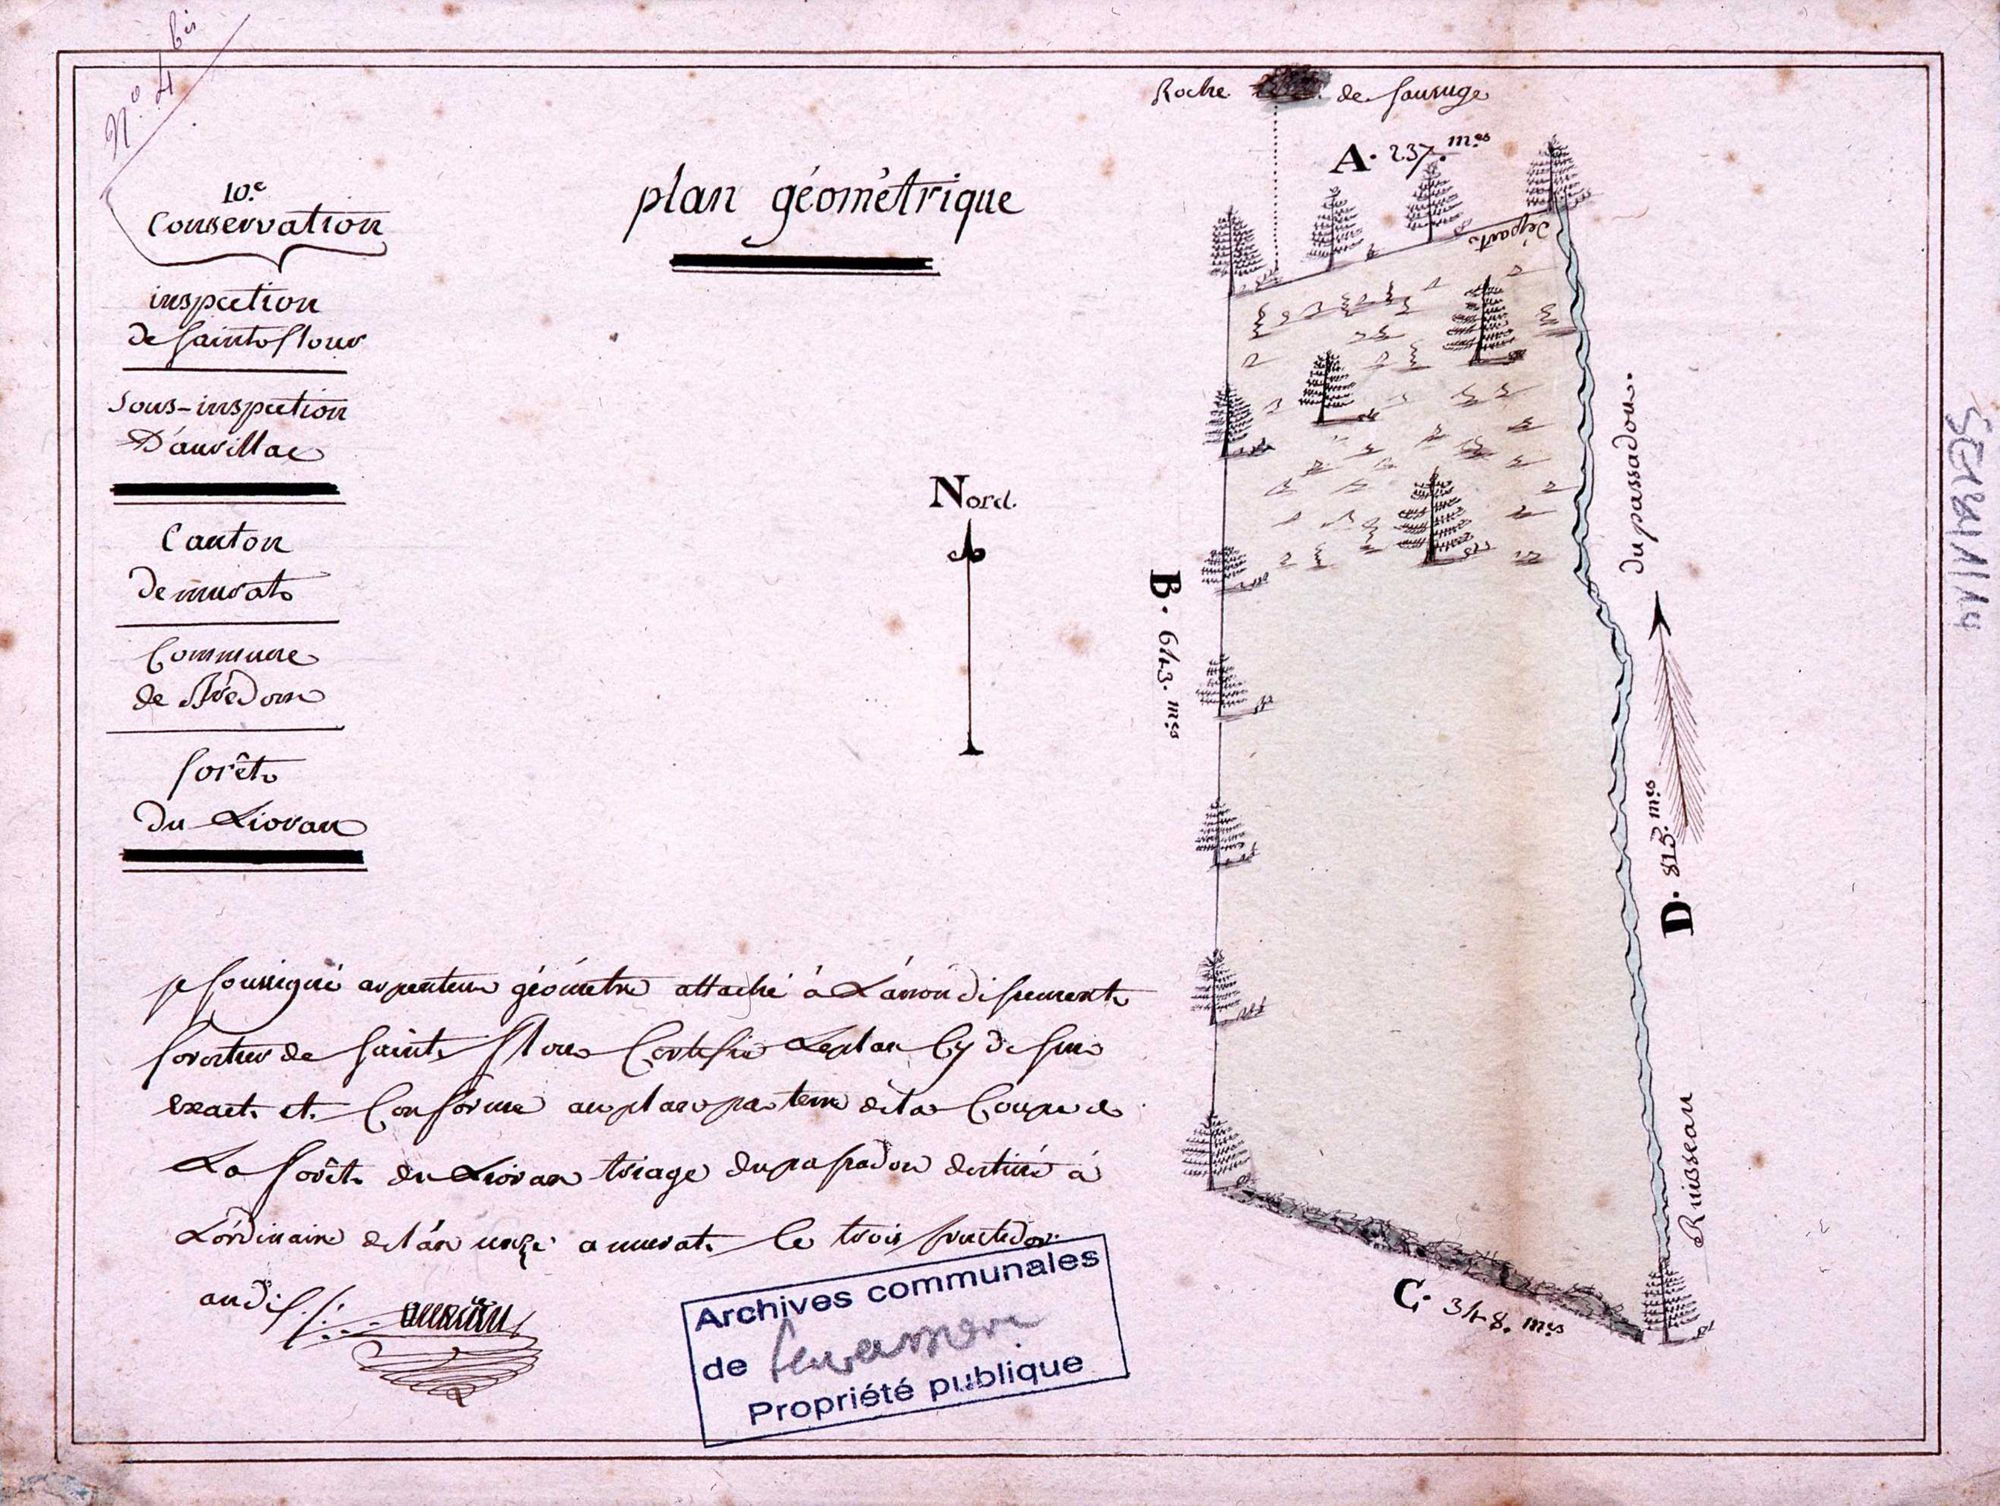 N.o 4 bis
10.e
Conservation
inspection
de saint flour
Sous-inspection
D'aurillac
Canton
De murat
Commune
de Brèdom
forêt
Du Lioran
plan géométrique
Nord.
Roche de
A. 237. m.es
Départ
B. 643. m.es
C. 348. m.es
D. 815. m.es
Ruisseau
du passadou.
je soussigné arpenteur géométre attaché à L'arrondissement
forestier de saint flour Certifie Le plan Cy dessus
exact et Conforme au plan par terre de la Coupe de
La forêt du Lioran triage du passadou destiné à
L'ordinaire de l'an unze a murat le trois fructidor
an dix
Archives communales
de
Propriété publique